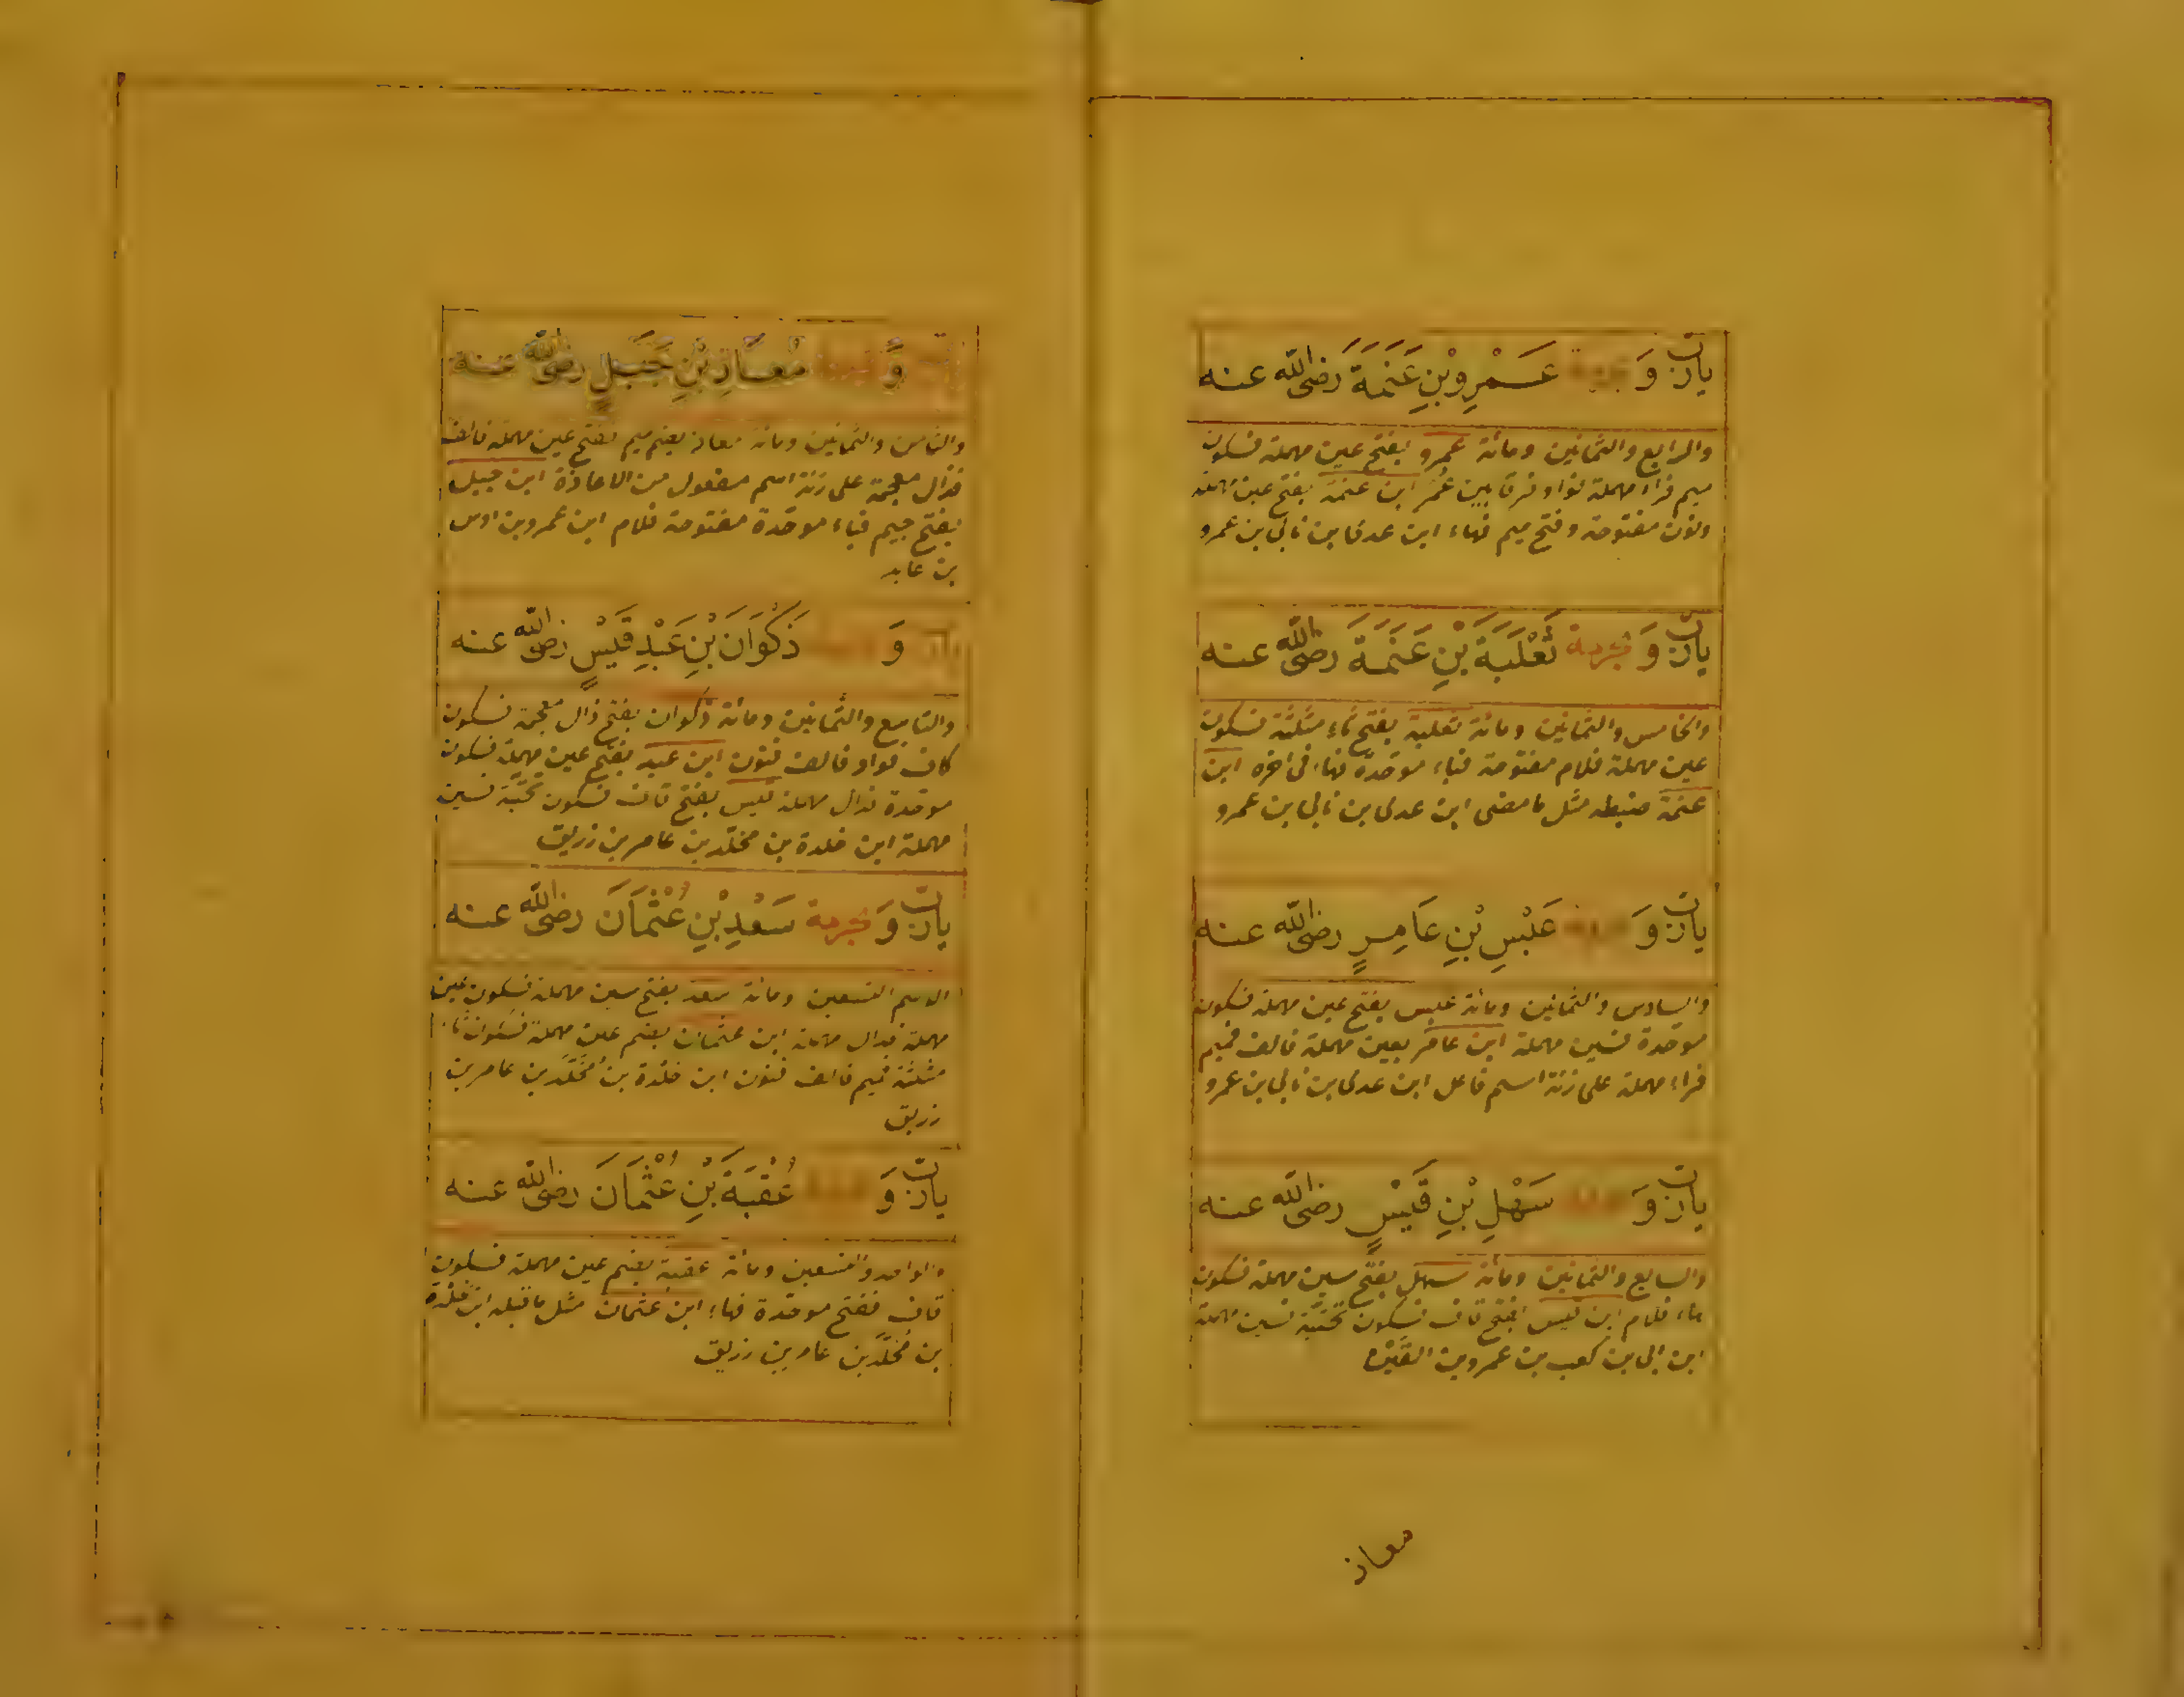 يارب وَ بحرمة عَمْرِو بْنِ عَنَمَةَ رضى الله عنه
والرابع والثمانين ومائة عمرو بفتح عين مهملة فسكون
ميم فراء مهملة فواو فرقا بين عُمَر ابن عنمة بفتح عين مهملة
ونون مفتوحة وفتح ميم فهاء ابن عدى بن نابى بن عمرو
يارب وَ بحرمة ثَعْلَبَةَ بْنِ عَنَمَةَ رضى الله عنه
والخامس والثمانين ومائة ثعلبة بفتح ثاء مثلثة فسكون
عين مهملة فلام مفتوحة فباء موحدة فهاء فى اخره ابن
عنمة ضبطه مثل ما مضى ابن عدى بن نابى بن عمرو
يارب وَ بحرمة عَبْسِ بْنِ عَامِرٍ رضى الله عنه
والسادس والثمانين ومائة عبس بفتح عين مهملة فسكون
موحدة فسين مهملة ابن عامر بعين مهملة فالف فميم
فراء مهملة على زنة اسم فاعل ابن عدى بن نابى بن عمرو
يارب وَ بحرمة سَهْلِ بْنِ قَيْسٍ رضى الله عنه
والسابع والثمانين ومائة سهل بفتح سين مهملة فسكون
هاء فلام ابن قيس بفتح قاف فسكون تحتية فسين مهملة
ابن ابى بن كعب بن عمرو بن القين
معاذ
يارب وَ بحرمة مُعَاذِ بْنِ جَبَلٍ رضى الله عنه
والثامن والثمانين ومائة معاذ بضم ميم ففتح عين مهملة فالف
فذال معجمة على زنة اسم مفعول من الاعاذة ابن جبل
بفتح جيم فباء موحدة مفتوحة فلام ابن عمرو بن اوس
بن عابد
يارب وَ بحرمة ذَكْوَانَ بْنِ عَبْدِ قَيْسٍ رضى الله عنه
والتاسع والثمانين ومائة ذكوان بفتح ذال معجمة فسكون
كاف فواو فالف فنون ابن عبد بفتح عين مهملة فسكون
موحدة فدال مهملة قيس بفتح قاف فسكون تحتية فسين
مهملة ابن خلدة بن مخلّد بن عامر بن زريق
يارب وَ بحرمة سَعْدِ بْنِ عُثْمَانَ رضى الله عنه
الاسم التسعين ومائة سعد بفتح سين مهملة فسكون عين
مهملة فدال مهملة ابن عثمان بضم عين مهملة فسكون ثاء
مثلثة فميم فالف فنون ابن خلدة بن مُخَلَّد بن عامر بن
زريق
يارب وَ بحرمة عُقْبَةَ بْنِ عُثْمَانَ رضى الله عنه
والواحد والتسعين ومائة عقبة بضم عين مهملة فسكون
قاف ففتح موحدة فهاء ابن عثمان مثل ما قبله ابن خَلْدة
بن مُخَلَّد بن عامر بن زريق